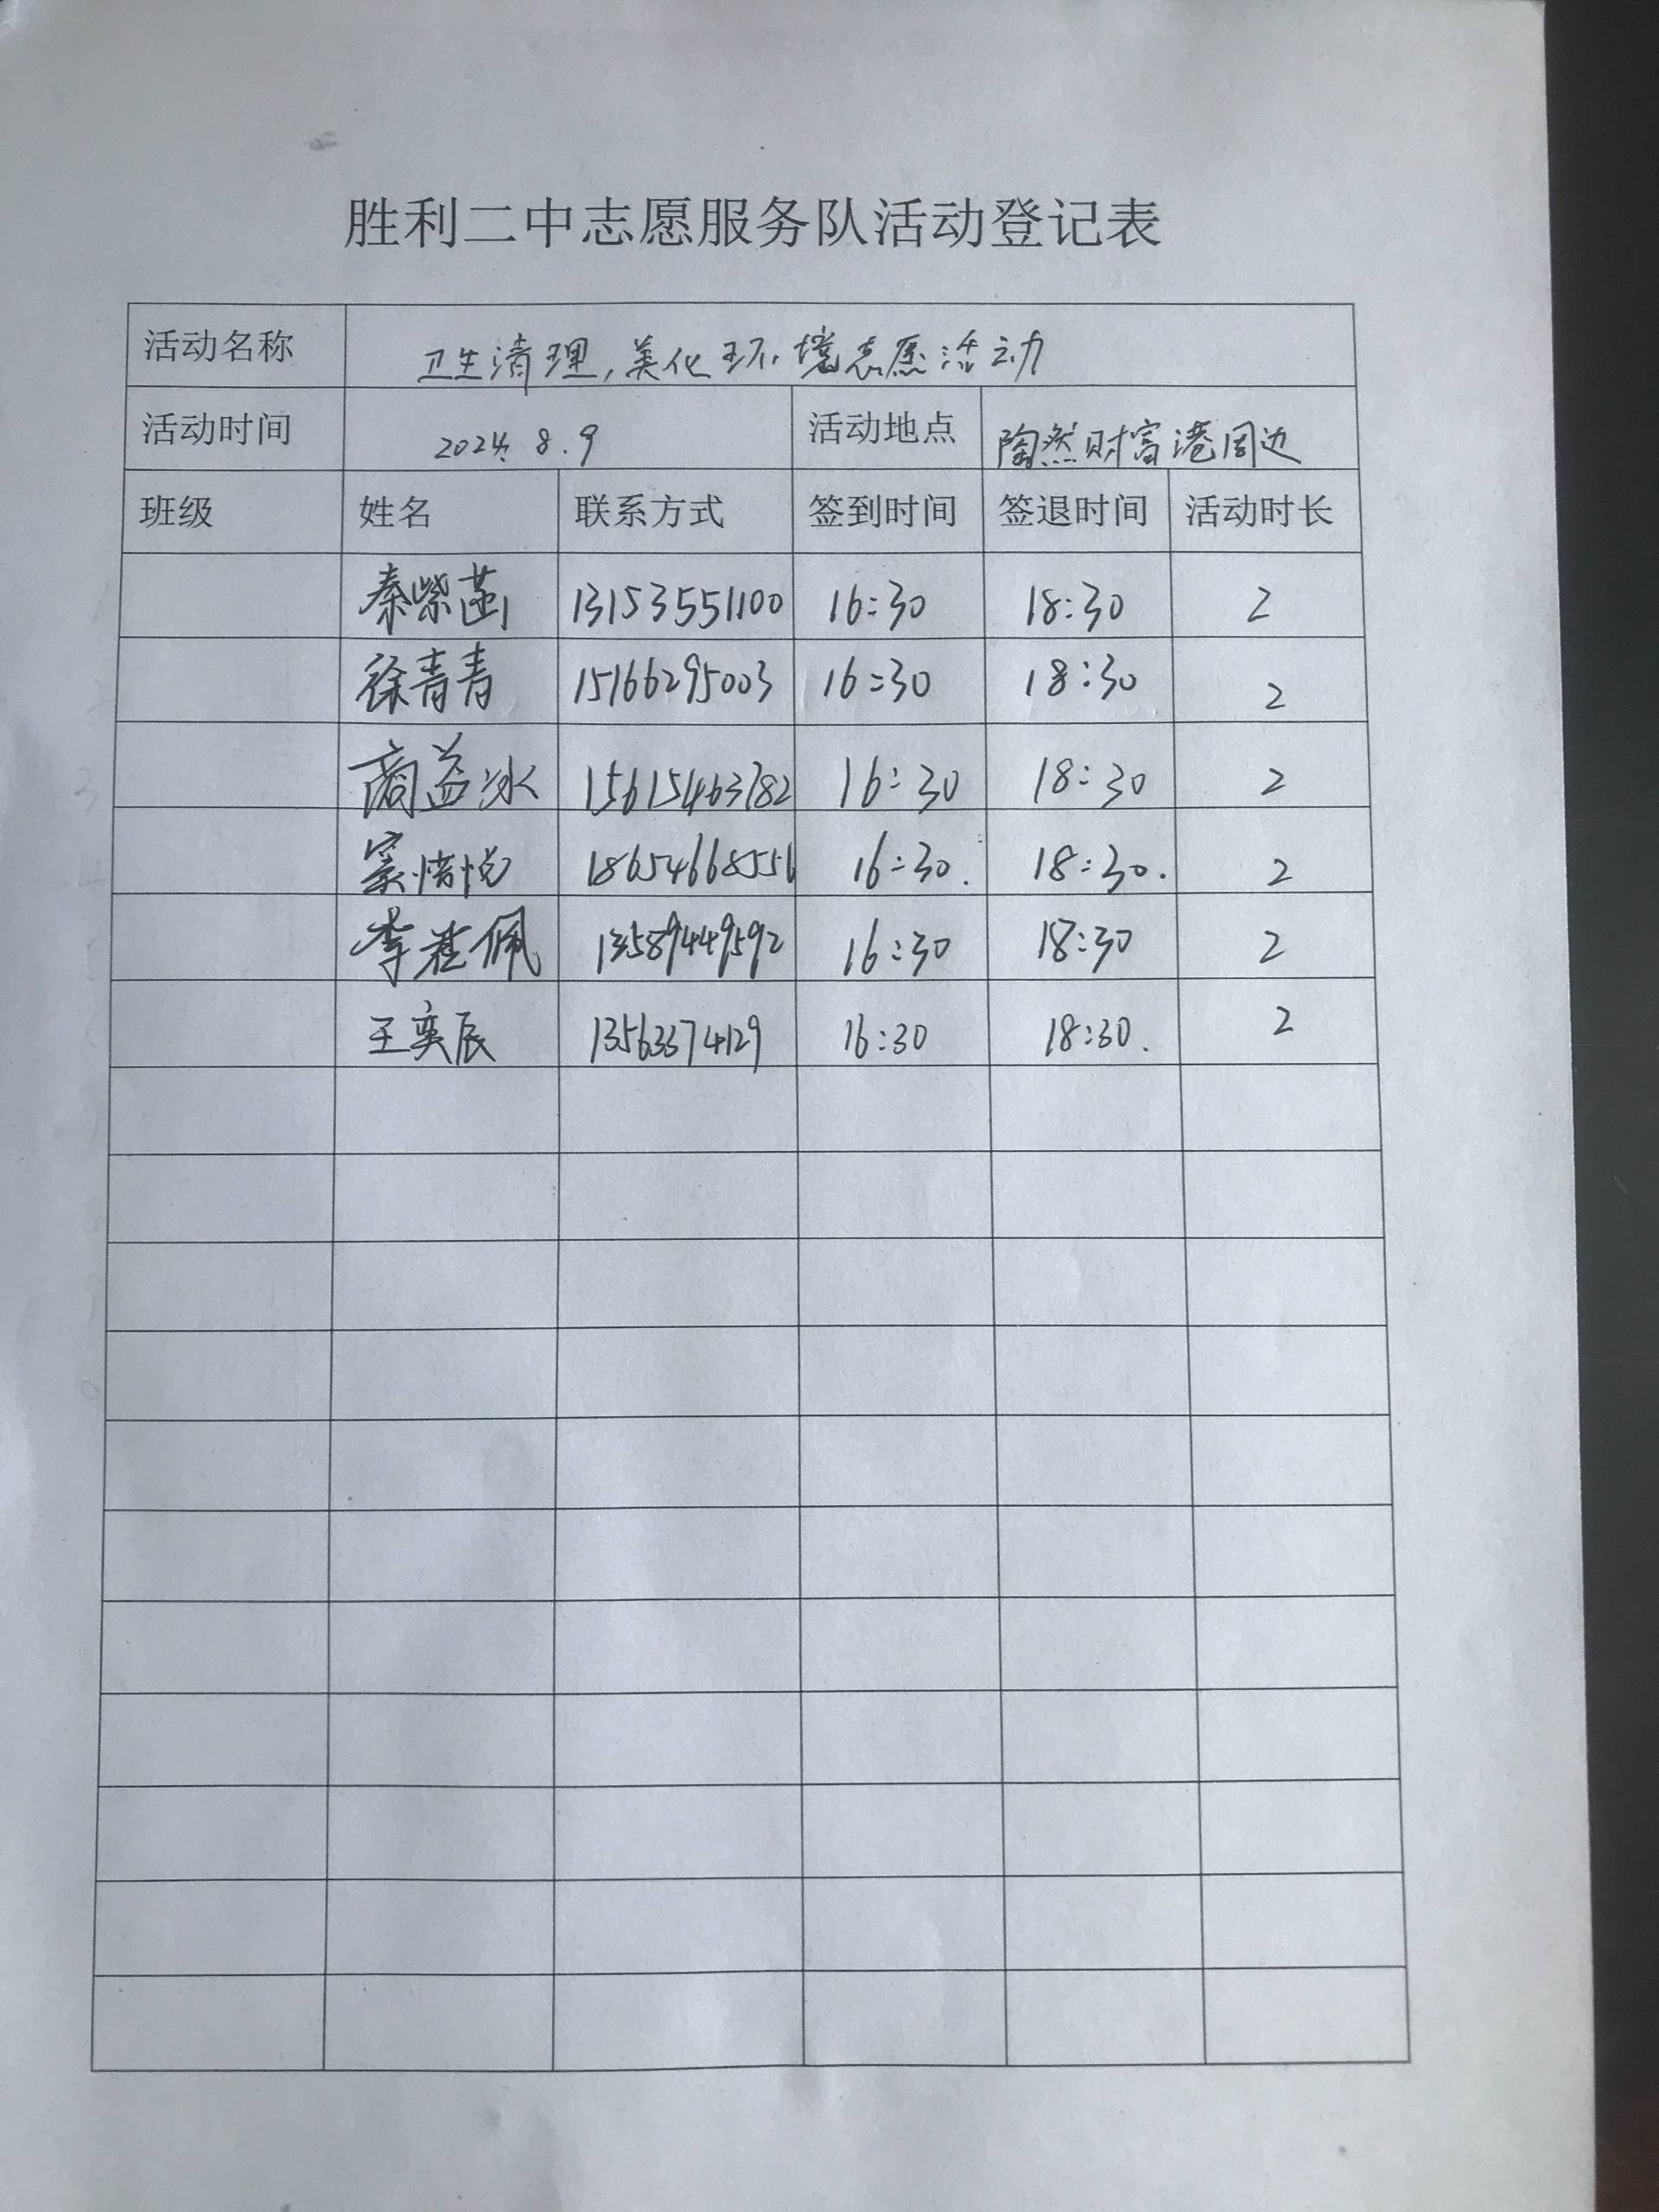 胜利二中志愿服务队活动登记表
活动名称 卫生清理,美化环境志愿活动
活动时间 2024.8.9 活动地点 陶然财富港周边
班级 姓名 联系方式 签到时间 签退时间 活动时长
秦紫菡 13153551100 16:30 18:30 2
徐青青 15166295003 16:30 18:30 2
商益冰 15615463782 16:30 18:30 2
窦惜悦 18654668556 16:30. 18:30. 2
李君佩 13589449592 16:30 18:30 2
王奕辰 13563374129 16:30 18:30. 2